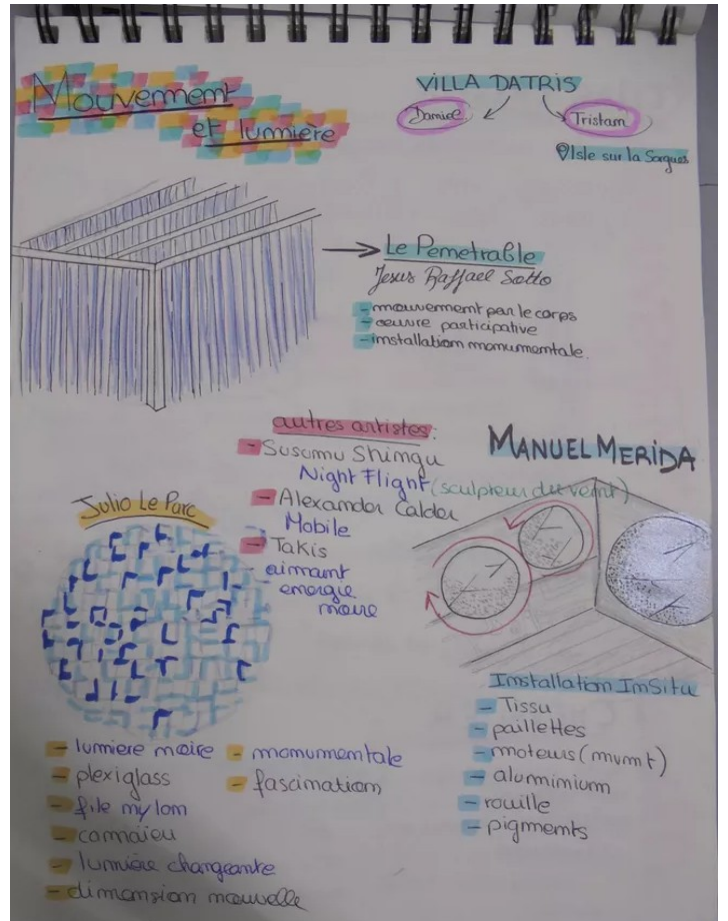 Mouvement
et lumière
VILLA DATRIS
Daniel
Tristan
Isle sur la Sorgues
Le Penetrable
Jesus Raffael Sotto
- mouvement par le corps
- œuvre participative
- installation monumentale.
autres artistes:
- Susumu Shingu
Night Flight (sculpteur du vent)
- Alexander Calder
Mobile
- Takis
aimant
energie
noire
MANUEL MERIDA
Julio Le Parc
- lumiere noire
- plexiglass
- file nylon
- camaïeu
- lumière changeante
- dimension nouvelle
- monumentale
- fascination
Installation InSitu
- Tissu
- paillettes
- moteurs (mvmt)
- alunminium
- rouille
- pigments